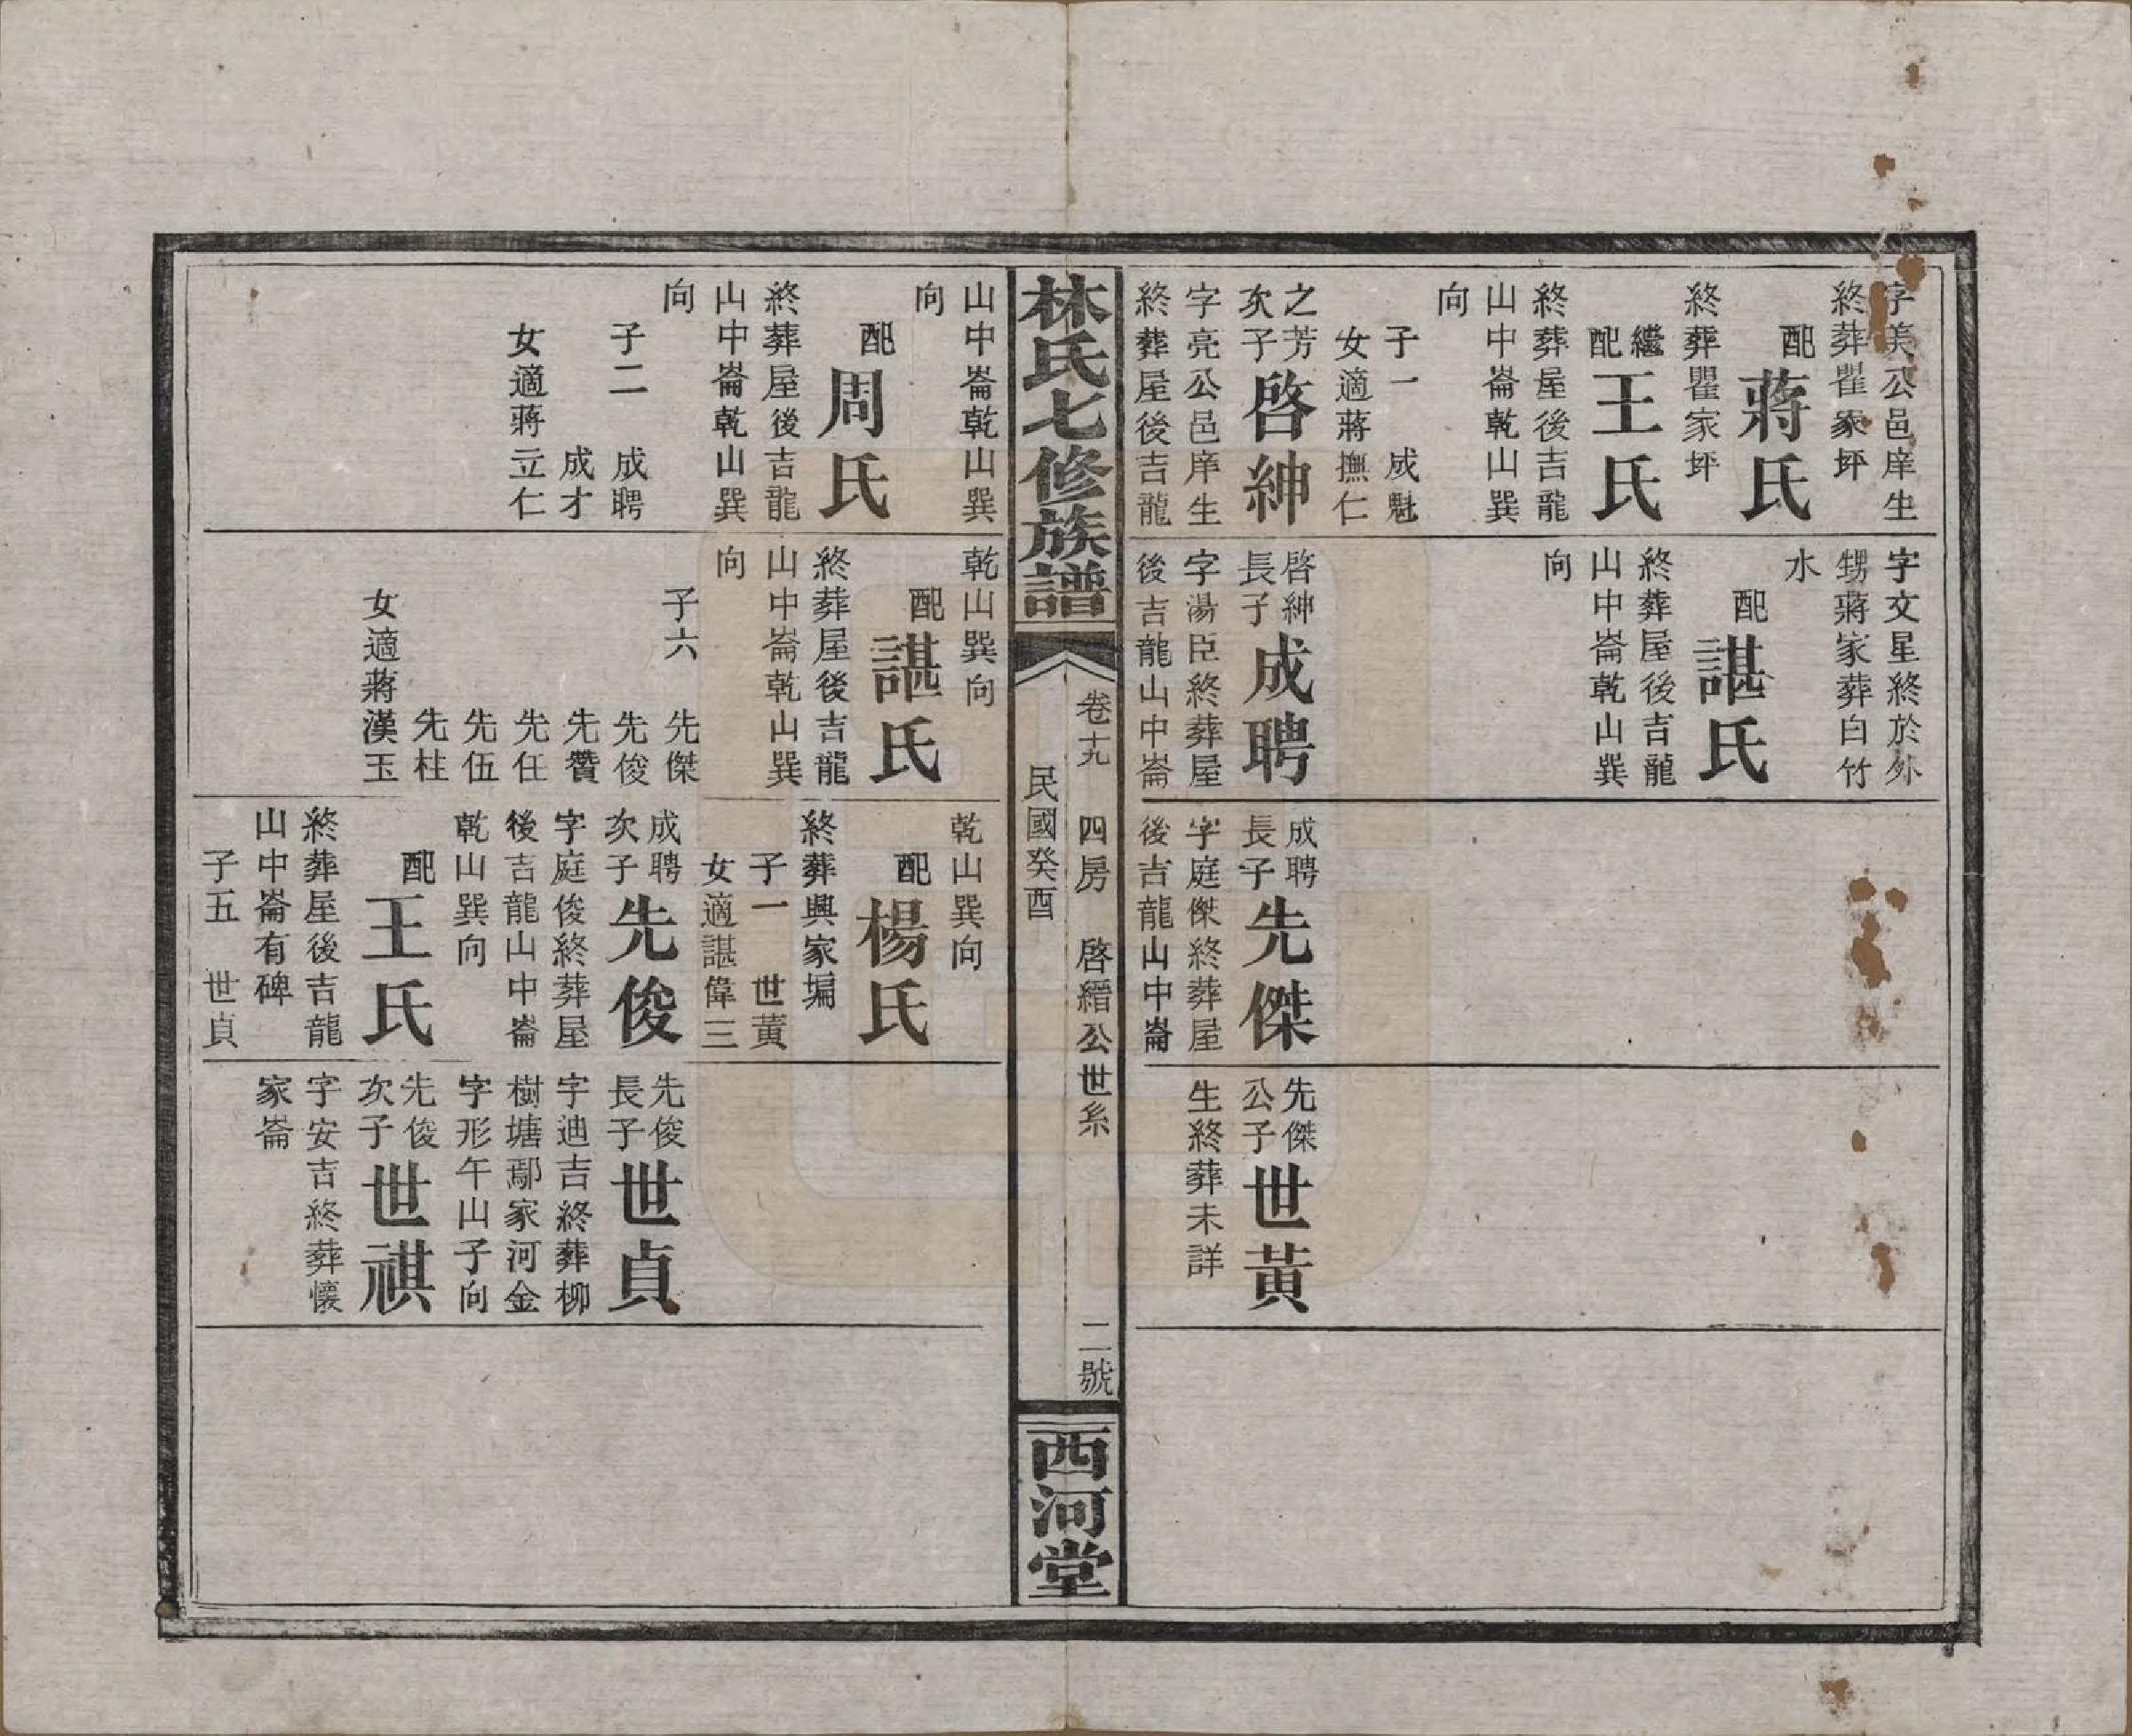 字美公邑庠生
終葬瞿家坪
配蔣氏
終葬瞿家坪
繼配王氏
終葬屋後吉龍
山中崙乾山巽
向
子一　成魁
女適蔣撫仁
之芳次子啓紳
字亮公邑庠生
終葬屋後吉龍
字文星終於外
甥蔣家葬白竹
水
配諶氏
終葬屋後吉龍
山中崙乾山巽
向
啓紳長子成聘
字湯臣終葬屋
後吉龍山中崙
成聘長子先傑
字庭傑終葬屋
後吉龍山中崙
先傑公子世黃
生終葬未詳
林氏七修族譜
卷十九　四房　啓縉公世系　二號
民國癸酉
西河堂
山中崙乾山巽
向
配周氏
終葬屋後吉龍
山中崙乾山巽
向
子二　成聘
成才
女適蔣立仁
乾山巽向
配諶氏
終葬屋後吉龍
山中崙乾山巽
向
子六　先傑
先俊
先贊
先任
先伍
先柱
女適蔣漢玉
乾山巽向
配楊氏
終葬興家塥
子一　世黃
女適諶偉三
成聘次子先俊
字庭俊終葬屋
後吉龍山中崙
乾山巽向
配王氏
終葬屋後吉龍
山中崙有碑
子五　世貞
先俊長子世貞
字迪吉終葬柳
樹塘鄢家河金
字形午山子向
先俊次子世祺
字安吉終葬懷
家崙